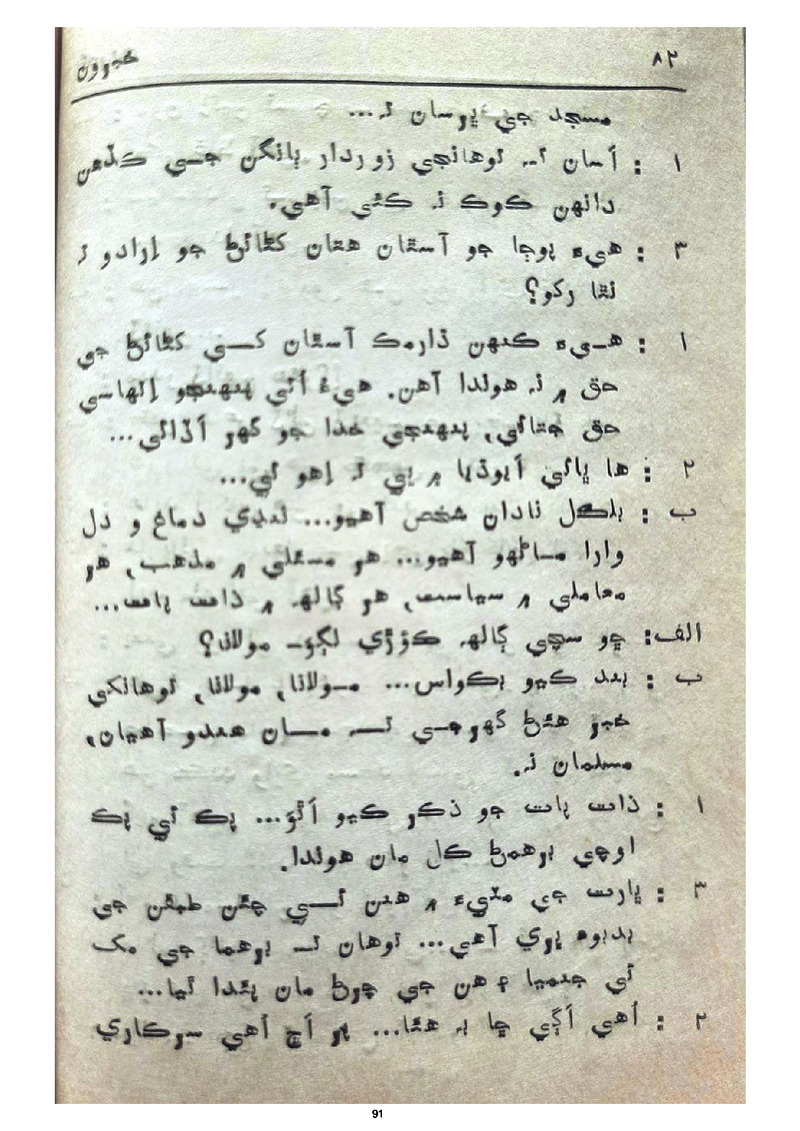 ۸۲
مسجد جي ڀرسان ئي...
۱ : اَسان تہ توهانجي زوردار ٻانگن جي ڪڏهن
دانهن ڪوڪ نہ ڪئي آهي.
۳ : هيءَ پوڄا جو آسٿان هتان کڻائڻ جو اِرادو تہ
نٿا رکو؟
۱ : هيءَ ڪنهن ڌارمڪ آسٿان کي کڻائڻ جي
حق ۾ نہ هوندا آهن. هيءُ اُتي پنهنجو اِتهاسي
حق ڄتائي، پنهنجي خدا جو گهر اَڏائي...
۲ : ها ڀائي اَيوڌيا ۾ بي تہ اِهو ئي...
ب : بلڪل نادان شخص آهيو... ننڍي دماغ و دل
وارا ماڻهو آهيو... هر مسئلي ۾ مذهب، هر
معاملي ۾ سياست، هر ڳالهہ ۾ ذات پات...
الف: ڇو سچي ڳالهہ ڪؤڙي لڳوَ۔ مولانا؟
ب : بند ڪيو بڪواس... مولانا، مولانا، توهانکي
خبر هئڻ گهرجي تہ مان هندو آهيان،
مسلمان نہ.
۱ : ذات پات جو ذڪر ڪيو اَٿوَ... پڪ ئي پڪ
اوچي برهمڻ ڪل مان هوندا.
۳ : ڀارت جي مٽيءَ ۾ هنن ئي چئن طبقن جي
بدبوءِ ڀري آهي... توهان تہ برهما جي مک
ئي جنميا ۽ هن جي چرڻ مان پئدا ٿيا...
۲ : اُهي اَڳي ڇا بہ هئا... پر اَڄ اُهي سرڪاري
91